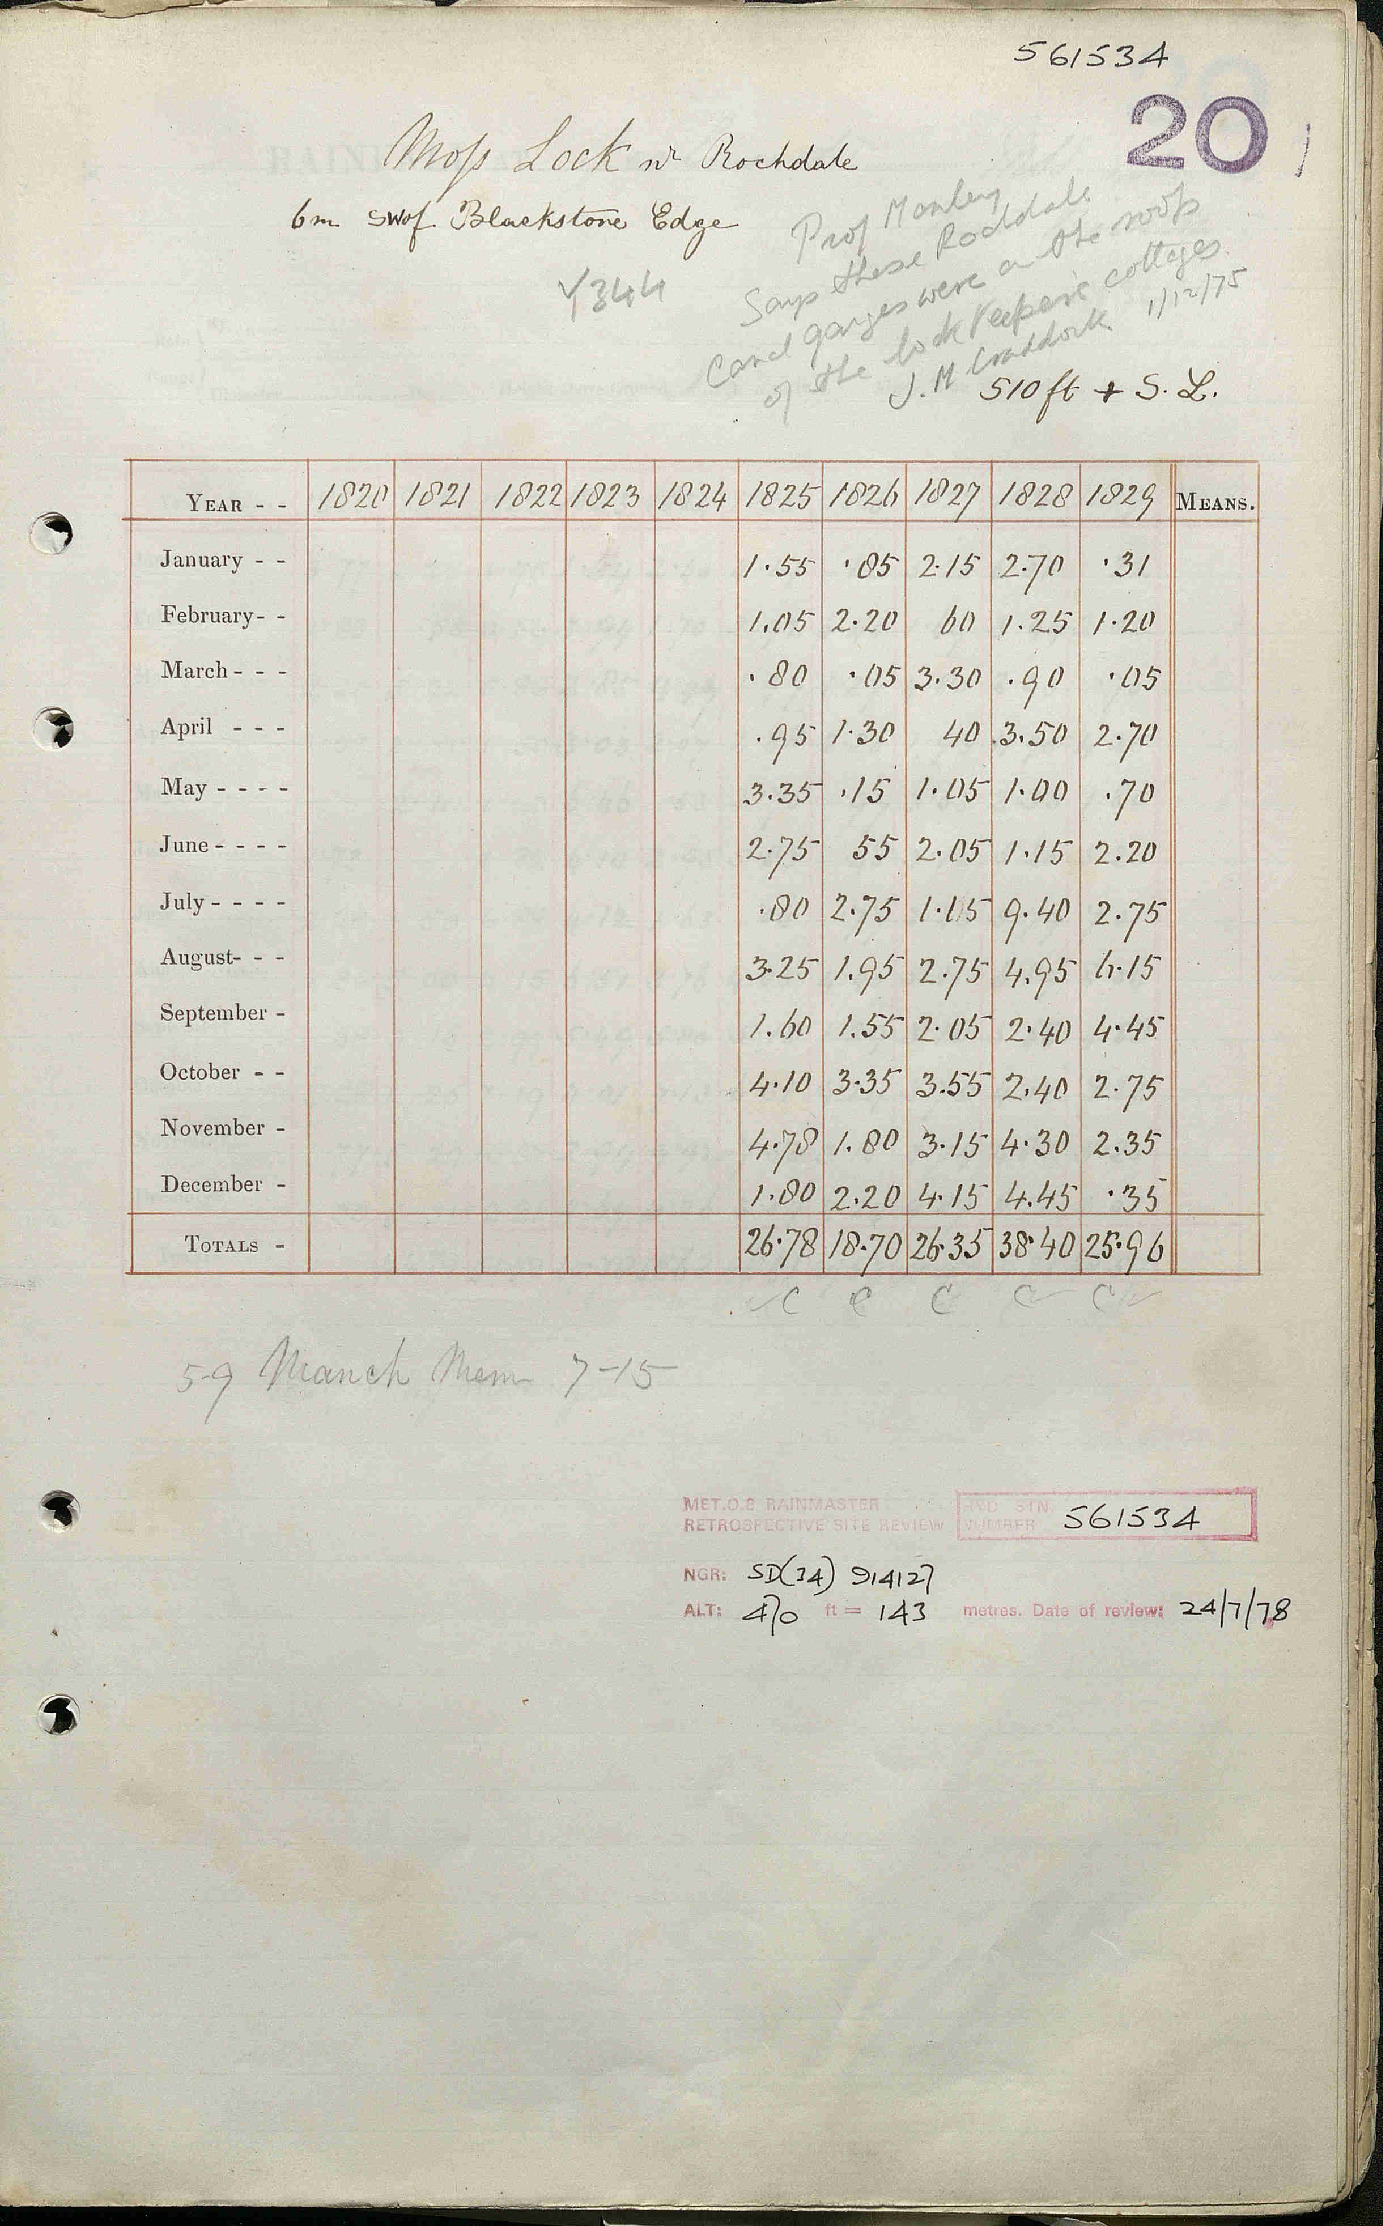 561534
20
Moss Lock nr Rochdale
6m SW of Blackstone Edge
Y344
Prof Manley
Says these Rochdale
Canal gauges were on the roofs
of the lock keepers' cottages
J. M Craddock 1/12/75
510 ft + S. L.
YEAR - - 1820 1821 1822 1823 1824 1825 1826 1827 1828 1829 MEANS.
January - - 1.55 .85 2.15 2.70 .31
February - - 1.05 2.20 60 1.25 1.20
March - - - .80 .05 3.30 .90 .05
April - - - .95 1.30 40 3.50 2.70
May - - - - 3.35 .15 1.05 1.00 .70
June - - - - 2.75 55 2.05 1.15 2.20
July - - - - .80 2.75 1.15 9.40 2.75
August - - - 3.25 1.95 2.75 4.95 6.15
September - 1.60 1.55 2.05 2.40 4.45
October - - 4.10 3.35 3.55 2.40 2.75
November - 4.78 1.80 3.15 4.30 2.35
December - 1.80 2.20 4.15 4.45 .35
TOTALS - 26.78 18.70 26.35 38.40 25.96
C C C C C
5-9 Manch Mem 7-15
MET.O.8 RAINMASTER
RETROSPECTIVE SITE REVIEW
RVD STN.
NUMBER 561534
NGR: SD(34) 914127
ALT: 470 ft = 143 metres. Date of review: 24/7/78